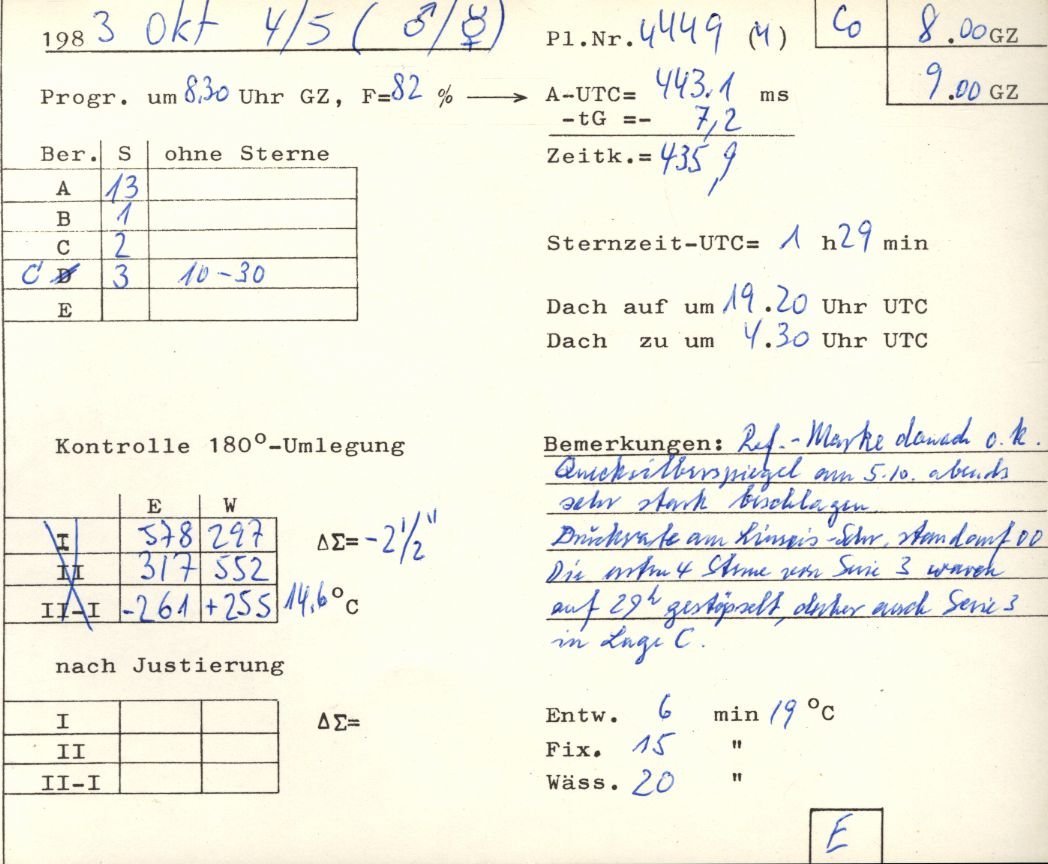 1983 Okt 4/5 (♂/☿)
Pl.Nr. 4449 (4)
Co 8.00 GZ
9.00 GZ
Progr. um 8.30 Uhr GZ, F=82 % → A-UTC= 443.1 ms
-tG =- 7,2
Zeitk.= 435,9
Ber. S ohne Sterne
A 13
B 1
C 2
C D 3 10-30
E
Sternzeit-UTC= 1 h 29 min
Dach auf um 19.20 Uhr UTC
Dach zu um 4.30 Uhr UTC
Kontrolle 180°-Umlegung
E W
I 578 297
II 317 552
II-I -261 +255 14,6 °C
ΔΣ= -2 1/2"
Bemerkungen: Ref.-Marke danach o.k.
Quecksilberspiegel am 5.10. abends
sehr stark beschlagen
am stand auf 00
Die ersten 4 Sterne von Serie 3 waren
auf 29h gestöpselt, daher auch Serie 3
in Lage C.
nach Justierung
I
II
II-I
ΔΣ=
Entw. 6 min 19 °C
Fix. 15 "
Wäss. 20 "
E